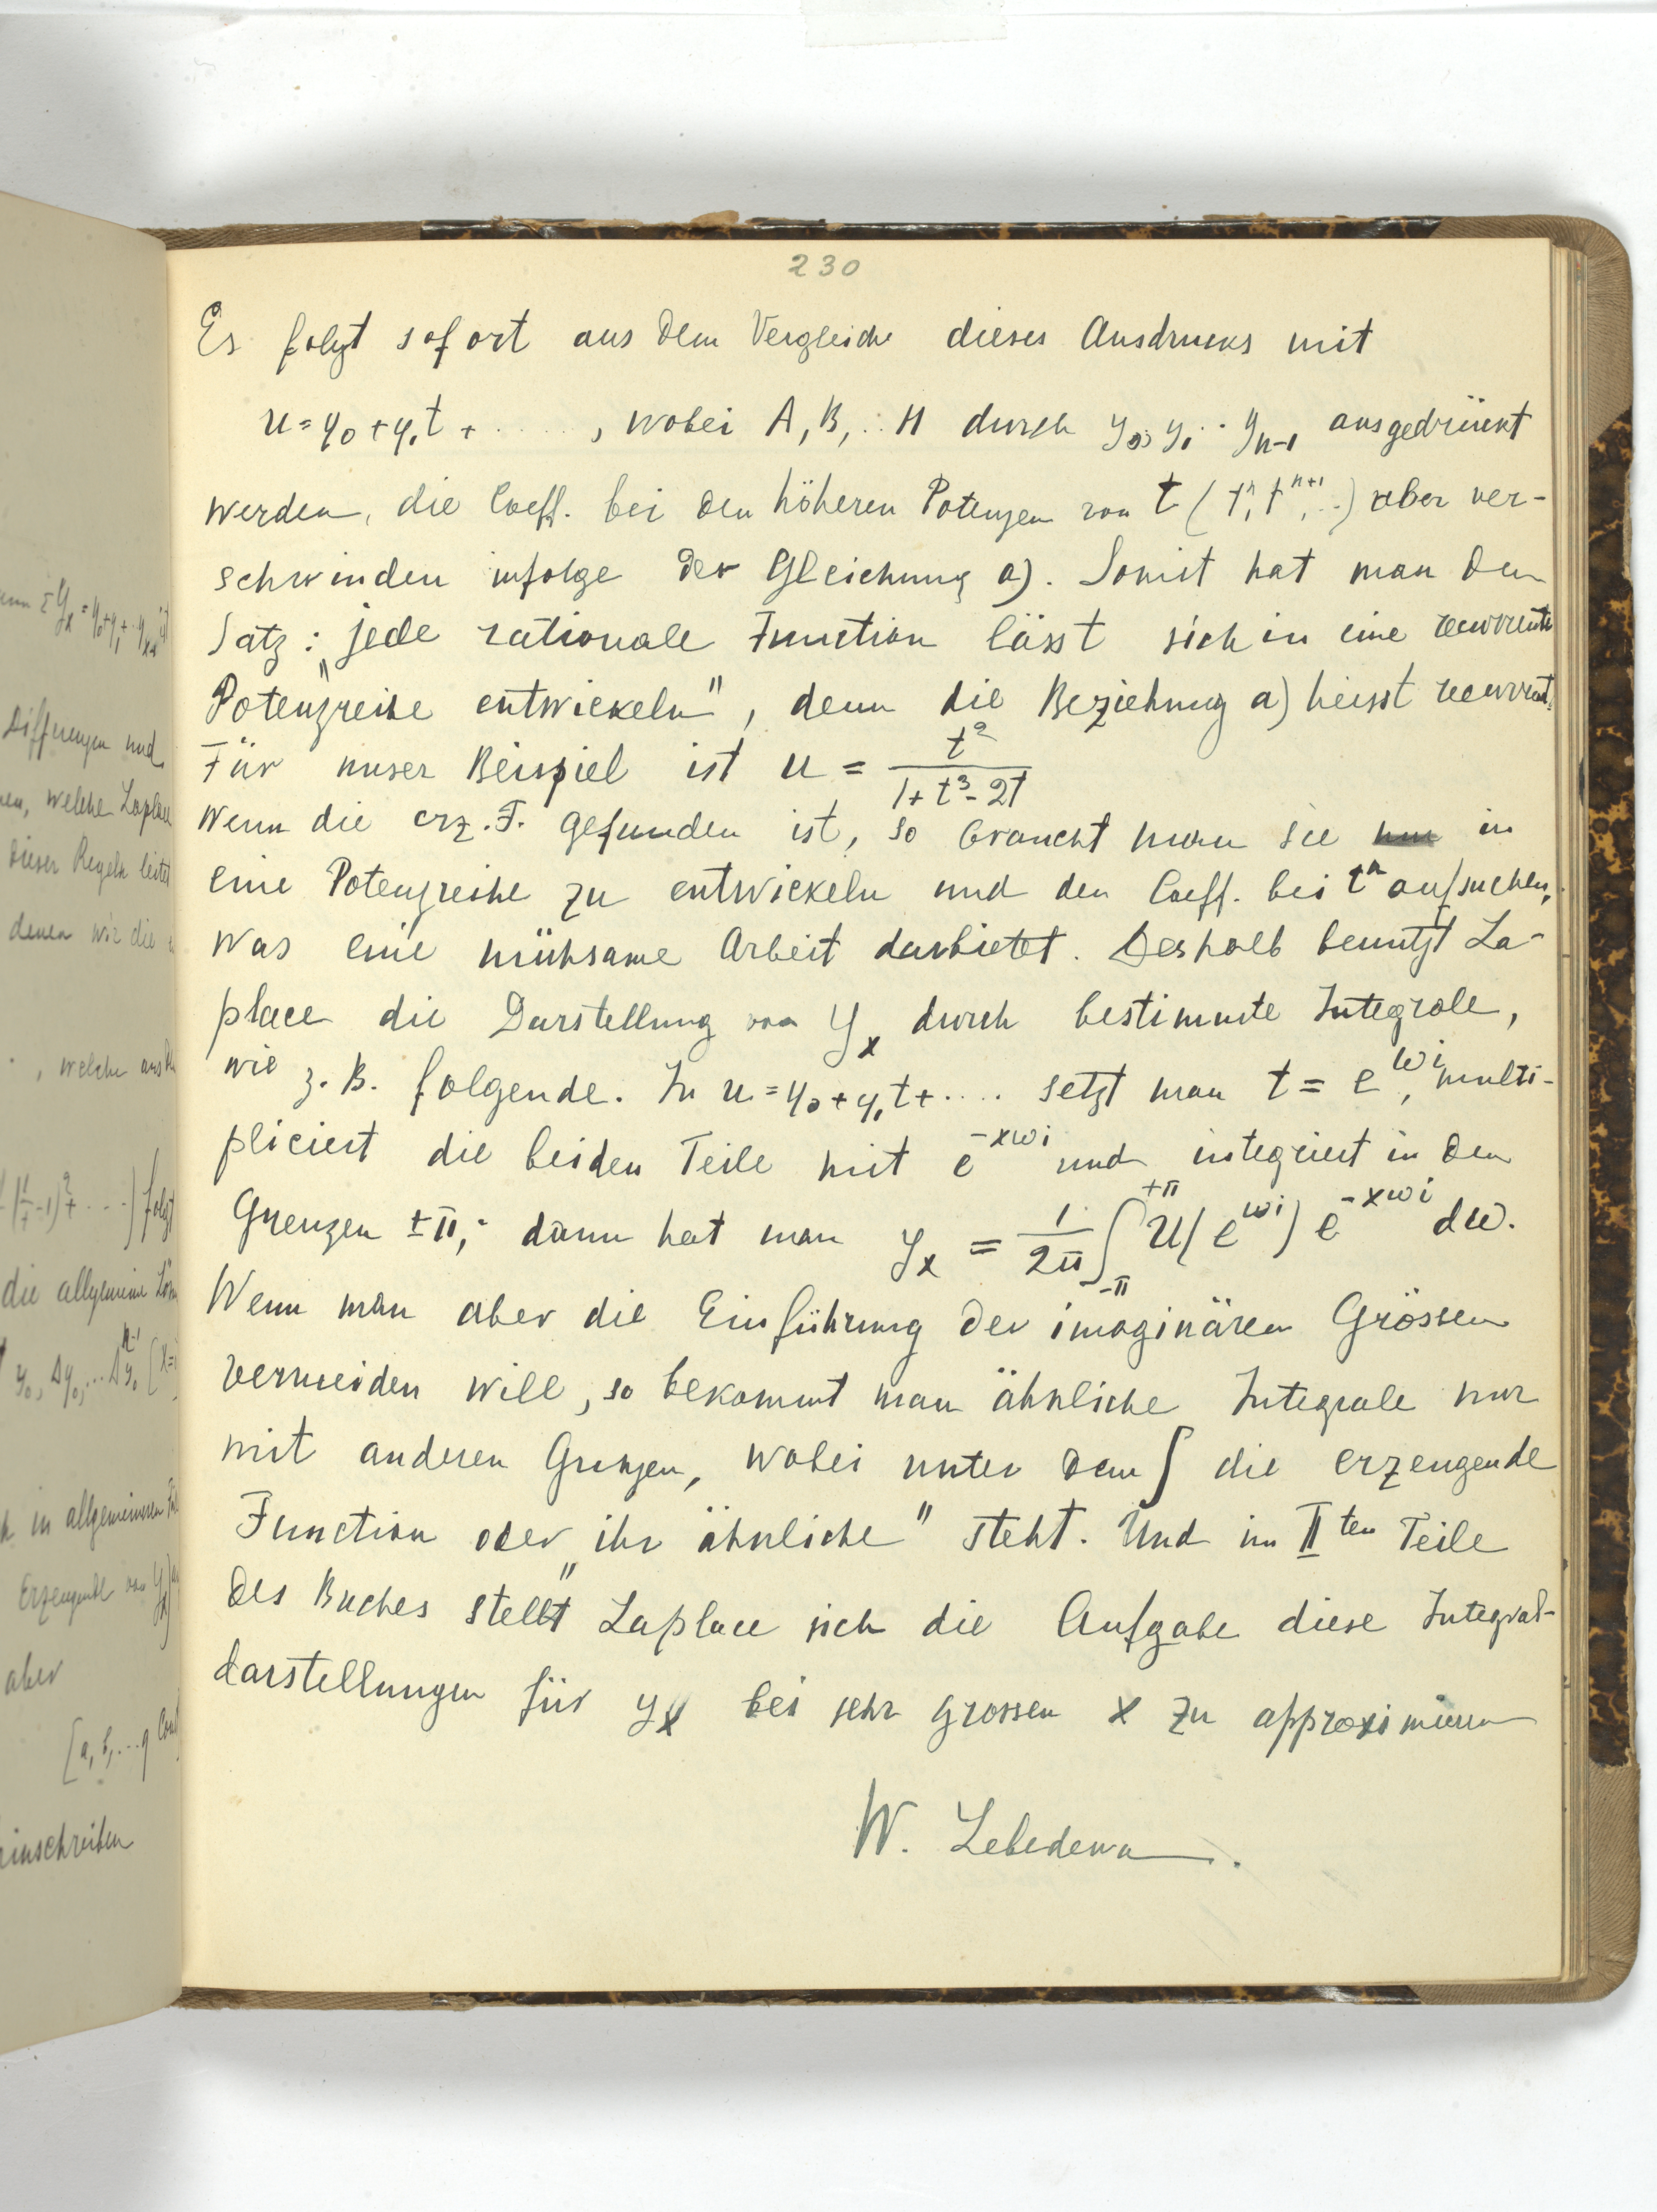 230
Es folgt sofort aus dem Vergleiche dieses Ausdrucks mit
u = y₀ + y₁t + ....., wobei A, B, .. H durch y₀, y₁ .. yₙ₋₁ ausgedrückt
werden, die Coeff. bei den höheren Potenzen von t (tⁿ, tⁿ⁺¹, ..) aber ver-
schwinden infolge der Gleichung a). Somit hat man den
Satz: „jede rationale Function lässt sich in eine recurrente
Potenzreihe entwickeln", denn die Beziehung a) heisst recurrent.
Für unser Beispiel ist u = t²/(1 + t³ - 2t)
Wenn die erz. F. gefunden ist, so braucht man sie in
eine Potenzreihe zu entwickeln und den Coeff. bei tⁿ aufsuchen,
was eine mühsame Arbeit darbietet. Deshalb benutzt La-
place die Darstellung von yₓ durch bestimmte Integrale,
wie z. B. folgende. In u = y₀ + y₁t + .... setzt man t = e^{ωi}, multi-
pliciert die beiden Teile mit e^{-xωi} und integriert in den
Grenzen ±π; dann hat man yₓ = 1/2π ∫_{-π}^{+π} U(e^{ωi}) e^{-xωi} dω.
Wenn man aber die Einführung der imaginären Grössen
vermeiden will, so bekommt man ähnliche Integrale nur
mit anderen Grenzen, wobei unter dem ∫ die erzeugende
Function oder „ihr ähnliche" steht. Und im II ten Teile
des Buches stellt Laplace sich die Aufgabe diese Integral-
darstellungen für yₓ bei sehr grossen x zu approximieren
W. Lebedewa.
Differenzen und
welche Laplace
dieser Regeln leitet
denen wir die
, welche aus
folgt
die allgemeine
y₀, Δy₀, ...
in allgemeineren
Erzeugende von yₓ
aber
[a, b, ... q
einschreiben